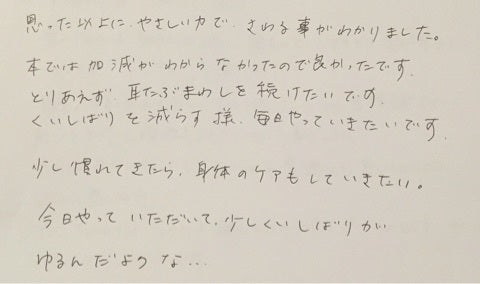 思った以上に、やさしい力で、さわる事がわかりました。
本では加減がわからなかったので良かったです。
とりあえず、耳たぶまわしを続けたいです。
くいしばりを減らす様、毎日やっていきたいです。
少し慣れてきたら、身体のケアもしていきたい。
今日やっていただいて、少しくいしばりが
ゆるんだような…